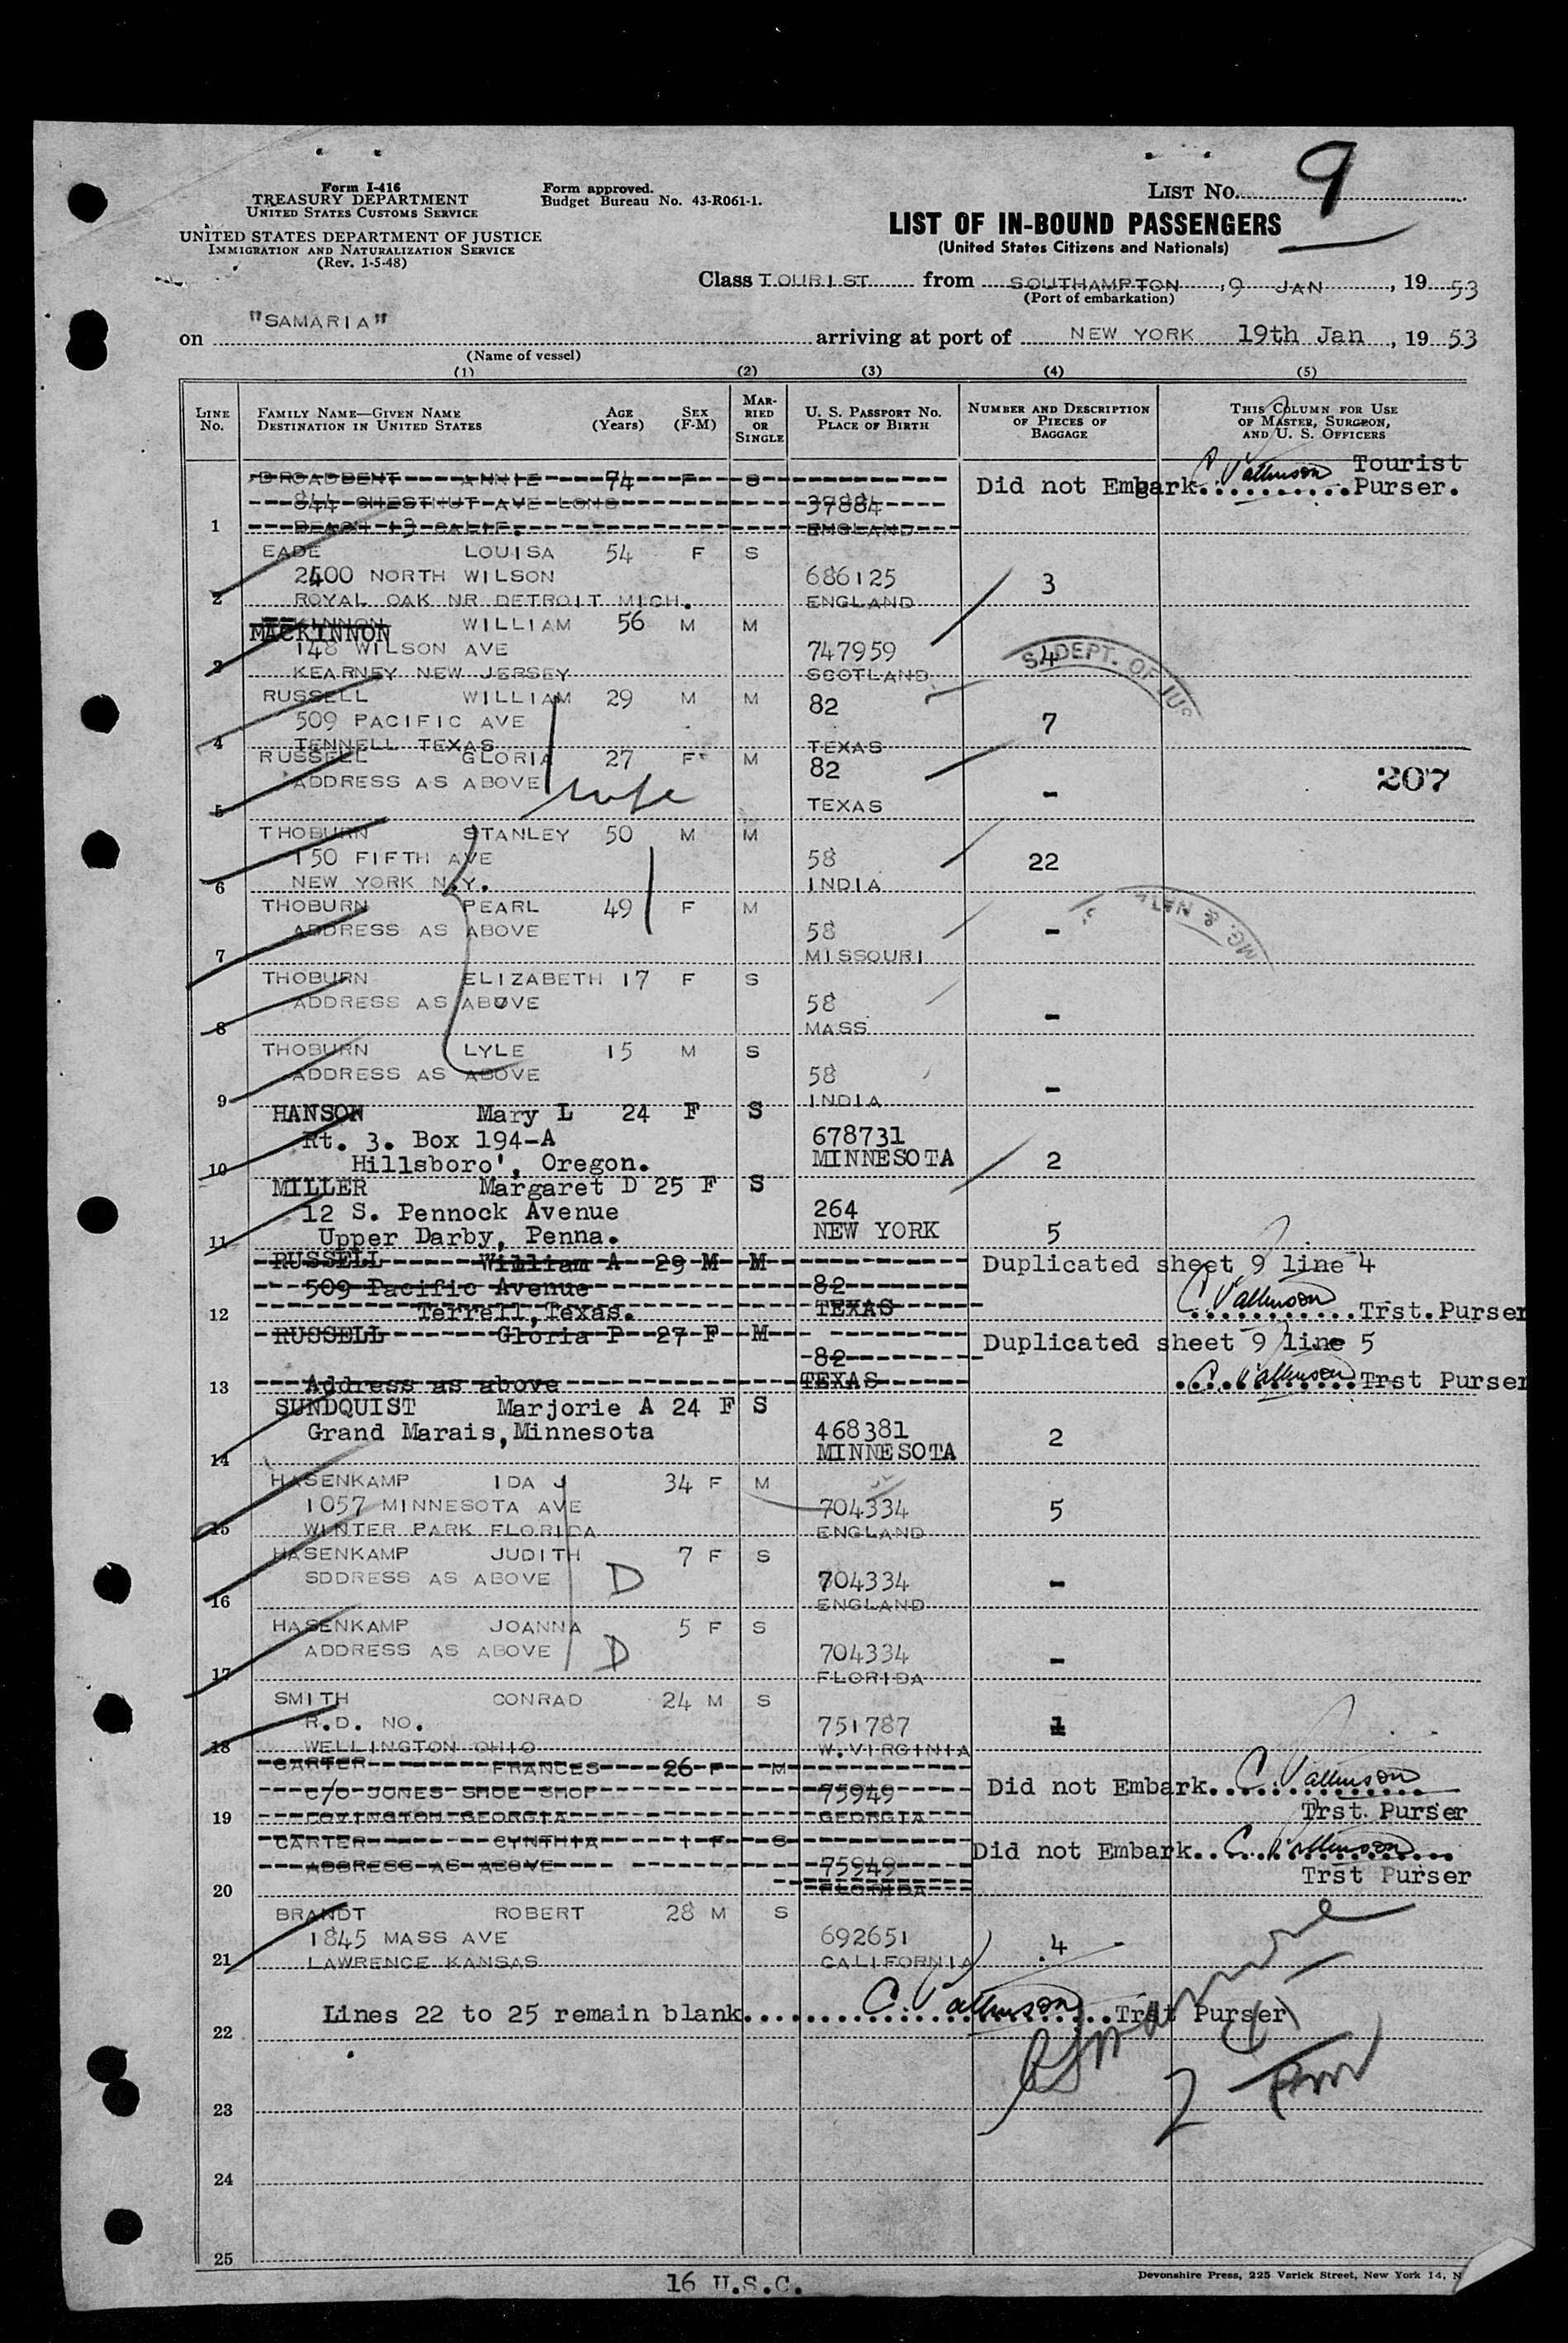 Form I-416
TREASURY DEPARTMENT
UNITED STATES CUSTOMS SERVICE
UNITED STATES DEPARTMENT OF JUSTICE
IMMIGRATION AND NATURALIZATION SERVICE
(Rev. 1-5-48)
Form approved.
Budget Bureau No. 43-R061-1.
LIST NO. 9
LIST OF IN-BOUND PASSENGERS
(United States Citizens and Nationals)
Class TOURIST from SOUTHAMPTON, 9 JAN, 1953
(Port of embarkation)
on "SAMARIA" arriving at port of NEW YORK 19th Jan, 1953
(Name of vessel)
(1) (2) (3) (4) (5)
LINE NO. FAMILY NAME—GIVEN NAME DESTINATION IN UNITED STATES AGE (Years) SEX (F-M) MARRIED OR SINGLE U. S. PASSPORT NO. PLACE OF BIRTH NUMBER AND DESCRIPTION OF PIECES OF BAGGAGE THIS COLUMN FOR USE OF MASTER, SURGEON, AND U. S. OFFICERS
BROADBENT ANNIE 74 F S Tourist
844 CHESTNUT AVE LONG 37884 Did not Embark.......... Purser.
1 BEACH 13 CALIF. ENGLAND
EADE LOUISA 54 F S
2400 NORTH WILSON 686125 3
2 ROYAL OAK NR DETROIT MICH. ENGLAND
MACKINNON WILLIAM 56 M M
148 WILSON AVE 747959 4
3 KEARNEY NEW JERSEY SCOTLAND
S. DEPT. OF JUS
RUSSELL WILLIAM 29 M M 82
509 PACIFIC AVE 7
4 TENNELL TEXAS TEXAS
RUSSELL GLORIA 27 F M 82
ADDRESS AS ABOVE - 207
wife
5 TEXAS
THOBURN STANLEY 50 M M
150 FIFTH AVE 58 22
6 NEW YORK N.Y. INDIA
THOBURN PEARL 49 F M
ADDRESS AS ABOVE 58 -
7 MISSOURI
THOBURN ELIZABETH 17 F S
ADDRESS AS ABOVE 58 -
8 MASS
THOBURN LYLE 15 M S
ADDRESS AS ABOVE 58 -
9 INDIA
HANSON Mary L 24 F S
Rt. 3. Box 194-A 678731
10 Hillsboro', Oregon. MINNESOTA 2
MILLER Margaret D 25 F S
12 S. Pennock Avenue 264
11 Upper Darby, Penna. NEW YORK 5
RUSSELL William A 29 M M Duplicated sheet 9 line 4
509 Pacific Avenue 82
12 Terrell, Texas. TEXAS ............Trst.Purser
RUSSELL Gloria P 27 F M Duplicated sheet 9 line 5
82
13 Address as above TEXAS ............Trst Purser
SUNDQUIST Marjorie A 24 F S
Grand Marais, Minnesota 468381 2
14 MINNESOTA
HASENKAMP IDA J 34 F M
1057 MINNESOTA AVE 704334 5
15 WINTER PARK FLORIDA ENGLAND
HASENKAMP JUDITH 7 F S
SDDRESS AS ABOVE D 704334 -
16 ENGLAND
HASENKAMP JOANNA 5 F S
ADDRESS AS ABOVE D 704334 -
17 FLORIDA
SMITH CONRAD 24 M S
R.D. NO. 751787 1
18 WELLINGTON OHIO W.VIRGINIA
CARTER FRANCES 26 F M
C/O JONES SHOE SHOP 75949 Did not Embark..............
19 COVINGTON GEORGIA GEORGIA Trst. Purser
CARTER CYNTHIA 1 F S Did not Embark..............
ADDRESS AS ABOVE 75949 Trst Purser
20 FLORIDA
BRANDT ROBERT 28 M S
1845 MASS AVE 692651 4 -
21 LAWRENCE KANSAS CALIFORNIA
Lines 22 to 25 remain blank..................Trst Purser
22
23
24
25
16 U.S.C.
Devonshire Press, 225 Varick Street, New York 14, N